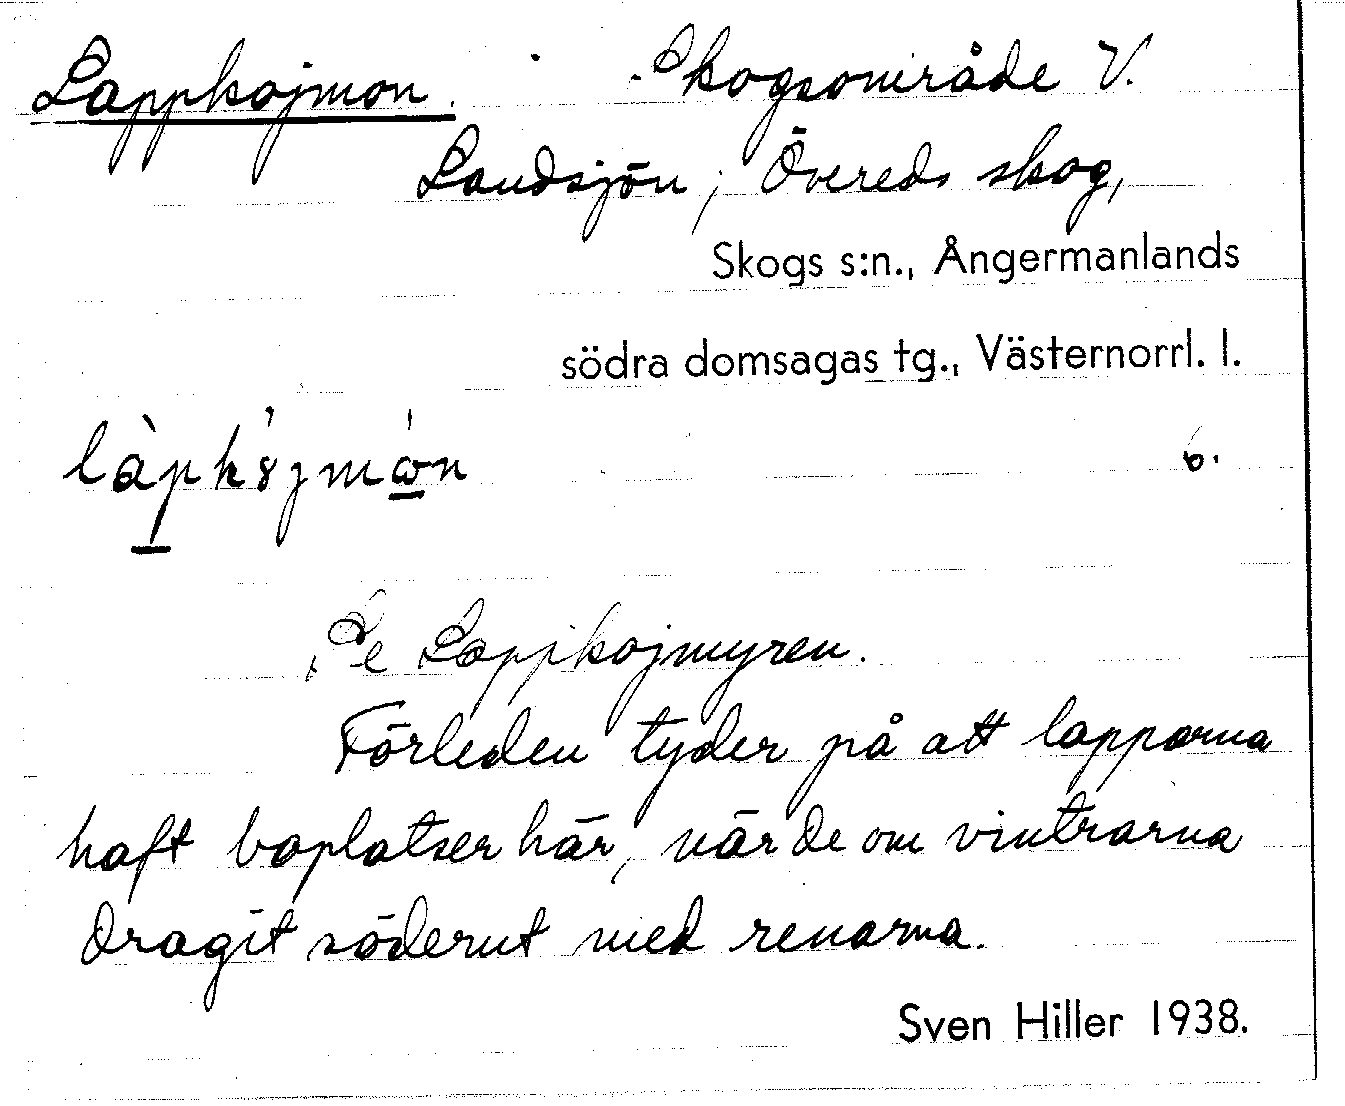 Lappkojmon. Skogsområde V.
Landsjön, Övereds skog,
Skogs s:n., Ångermanlands
södra domsagas tg., Västernorrl. l.
6.
Se Lappkojmyren.
Förleden tyder på att lapparna
haft boplatser här, när de om vintrarna
dragit söderut med renarna.
Sven Hiller 1938.